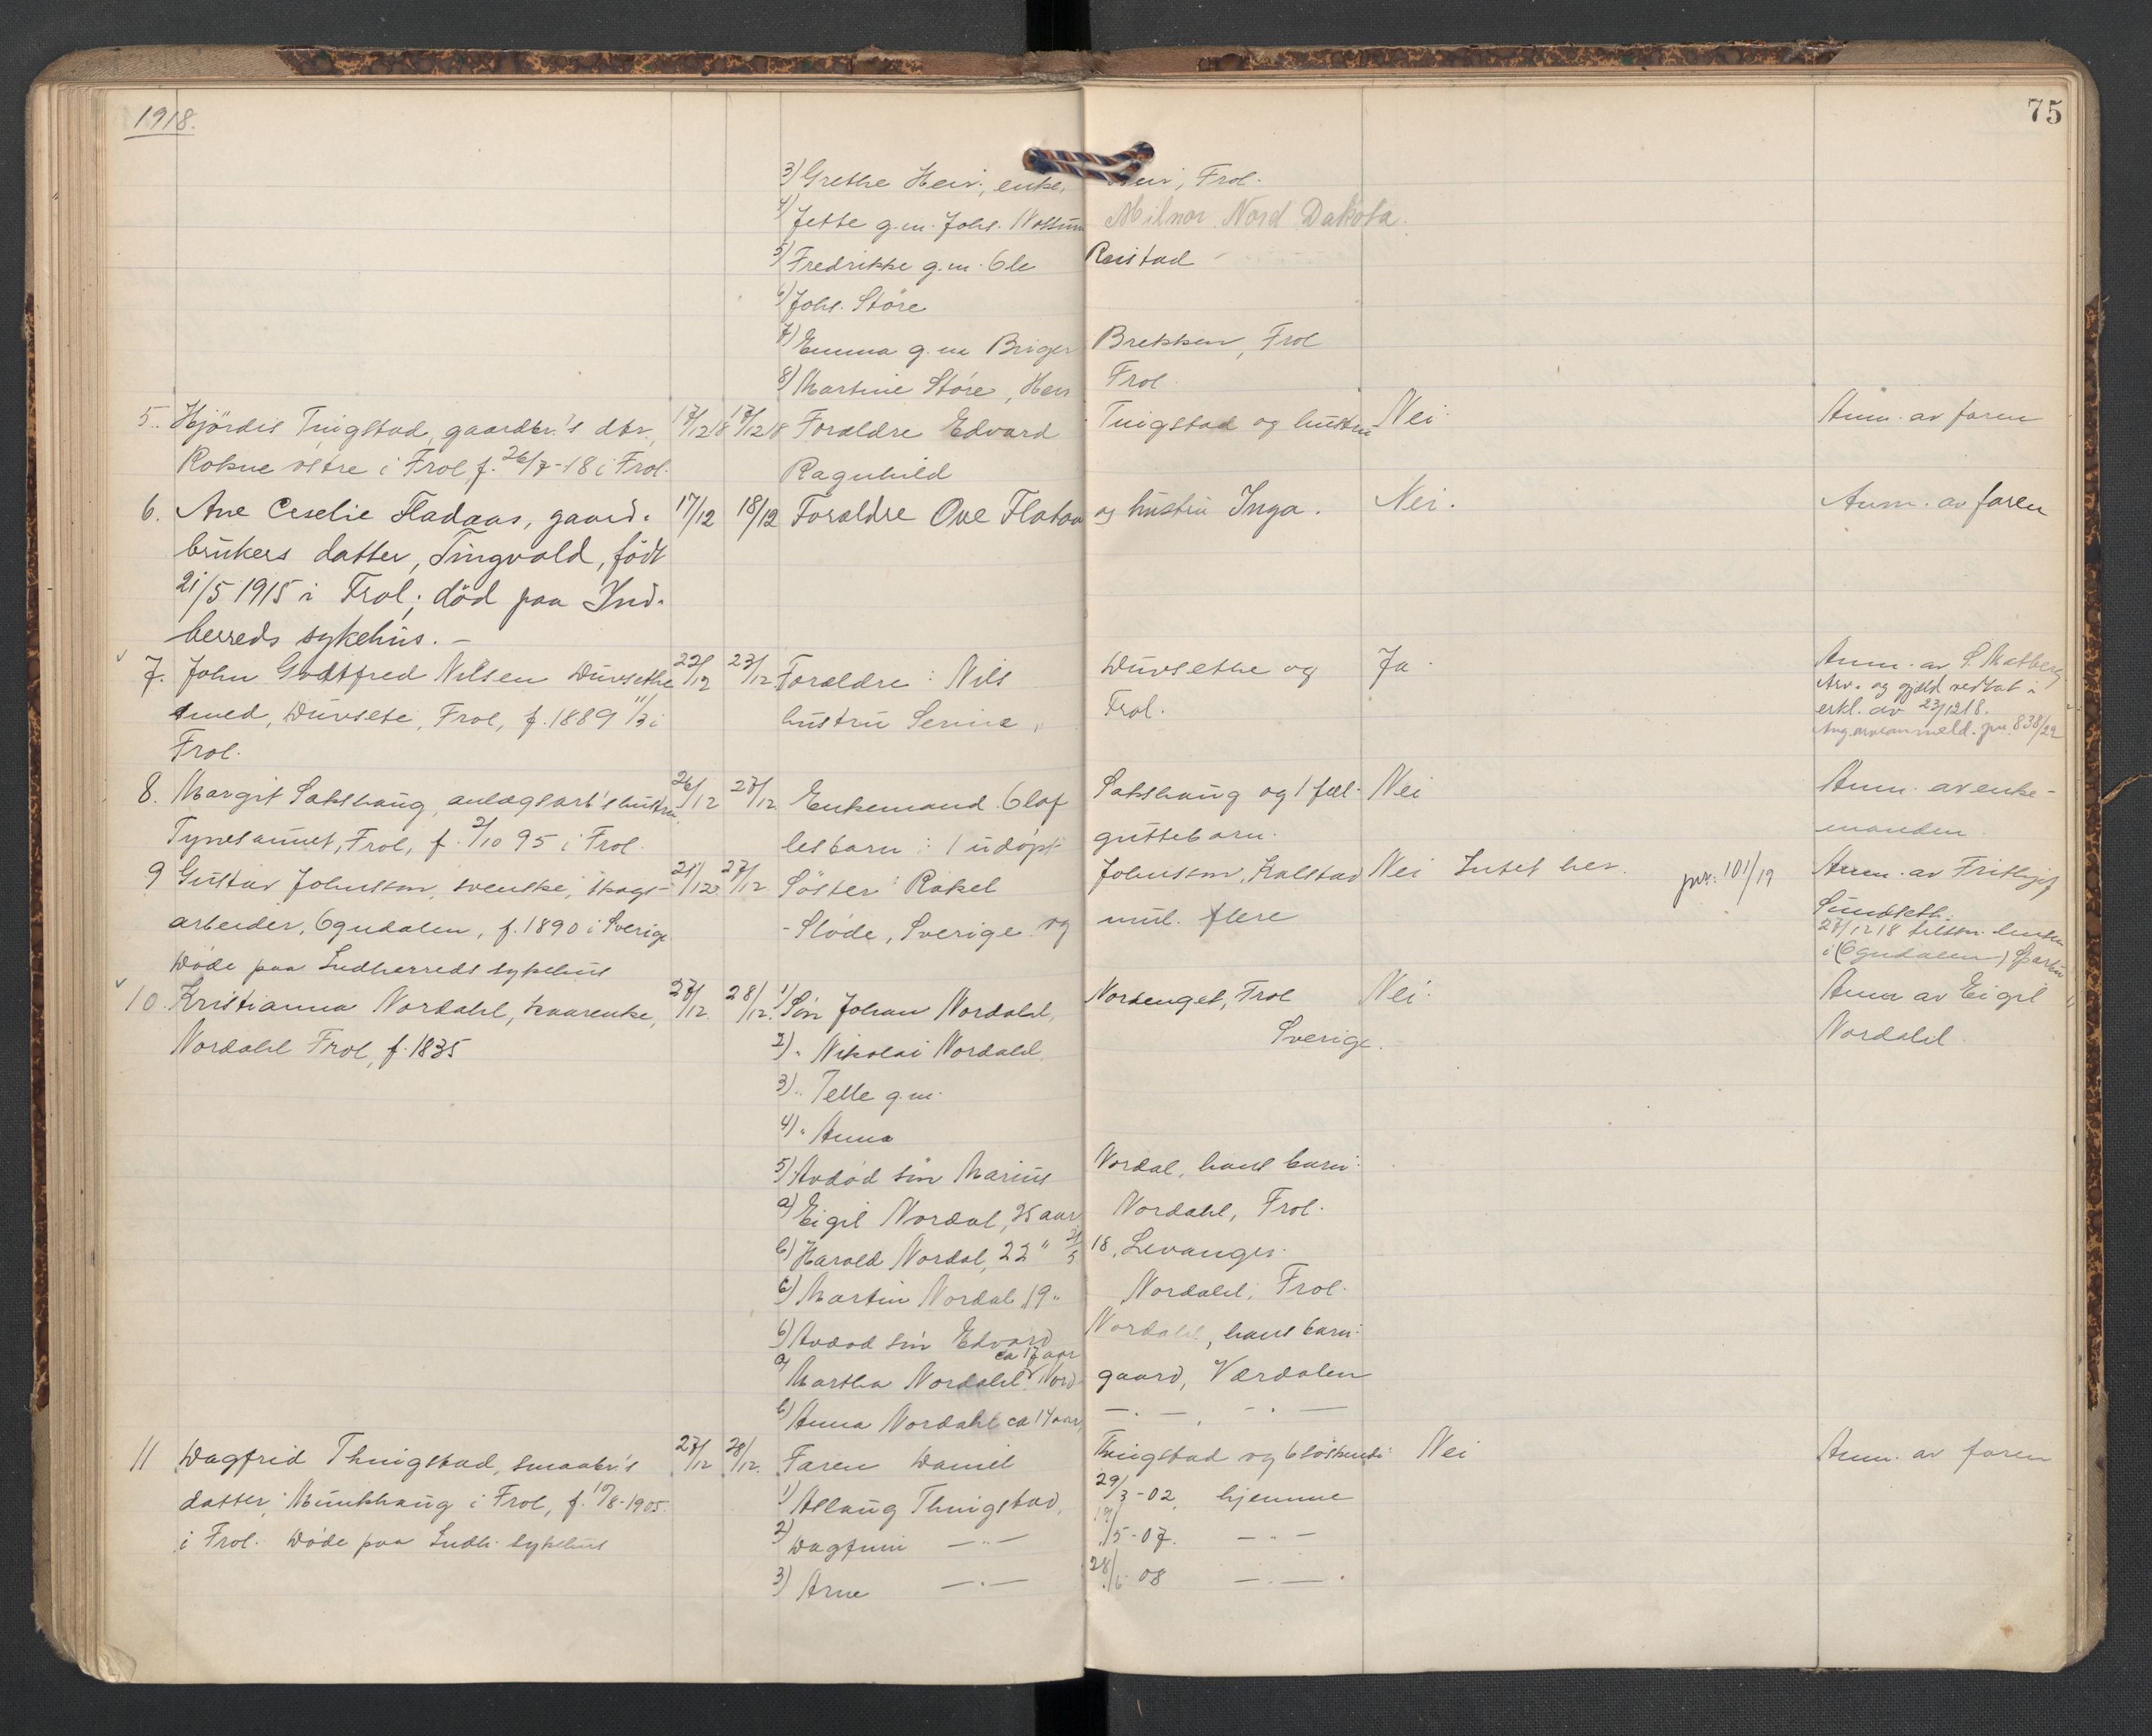 1918.
75
3) Grethe Heir, enke, Heir, Frol.
4) Jette g.m. Johs. Nossum Milnor Nord Dakota.
5) Fredrikke g.m. Ole Reistad
6) Johs. Störe
7) Emma g.m Briger Brekken, Frol
8) Martine Störe, Heir Frol.
5. Hjördis Tingstad, gaardbr.'s dtr., 17/12 18 17/12 18 Forældre Edvard Tingstad og hustru Nei. Anm. av faren
Rokne östre i Frol, f. 26/7-18 i Frol. Ragnhild
6. Ane Ceselie Fladaas, gaard- 17/12 18/12 Forældre Ove Flataa og hustru Inga. Nei. Anm. av faren
brukers datter, Tingvold, född
21/5 1915 i Frol; död paa Ind-
herreds sykehus. -
7. John Godtfred Nilsen Duvsethe 22/12 23/12 Forældre: Nils Duvsethe og Ja. Anm. av S. Matberg
smed, Duvsete, Frol, f. 1889 11/3 i hustru Serine, Frol. Arv- og gjæld vedtat i
Frol. erkl. av 23/12 18.
Ang. arveanmeld. jnr. 838/22
8. Margit Sakshaug, anlægsarb's hustru 26/12 27/12 Enkemand Olaf Sakshaug og 1 fæl- Nei Anm. av enke-
Tynesaunet, Frol, f. 2/10 95 i Frol. lesbarn: 1 udöpt guttebarn. manden
9 Gustav Johnsson, svenske, skogs- 25/12 27/12 Söster Rakel Johnsson, Kalstad Nei Intet her. jnr. 101/19 Anm. av Frithjof
arbeider, Ogndalen, f. 1890 i Sverige - Slöde, Sverige og mul. flere Sundseth.
Döde paa Indherreds sykehus 27/12 18 tilskr. lensm.
i (Ogndalen) Sparbu
10. Kristianna Nordahl, kaarenke, 27/12. 28/12. 1) Sön Johan Nordahl, Nordenget, Frol Nei. Anm av Eigil
Nordahl Frol, f. 1835 2) " Nikolai Nordahl Sverige. Nordahl
3) " Telle g.m.
4) " Anna
5) Avdöd sön Marius Nordal, hans barn:
a) Eigil Nordal, 25 aar Nordahl, Frol.
b) Harold Nordal, 22 " 21/5 18, Levanger.
c) Martin Nordal 19 " Nordahl, Frol.
6) Avdöd sön Edvard Nordahl, hans barn:
a) Martha Nordahl ca 17 aar Nord- gaard, Værdalen
b) Anna Nordahl ca 14 aar, — " —
11 Dagfrid Thingstad, smaabr.'s 27/12 28/12. Faren Daniel Thingstad og 6 söskende: Nei Anm. av faren
datter, Munkhaug i Frol, f. 19/8-1905. 1) Aslaug Thingstad, 29/3-02, hjemme
i Frol. Döde paa Indh. sykehus 2) Dagfinn — " — /5-07. — " —
3) Arne — " — 28/6 08 — " —